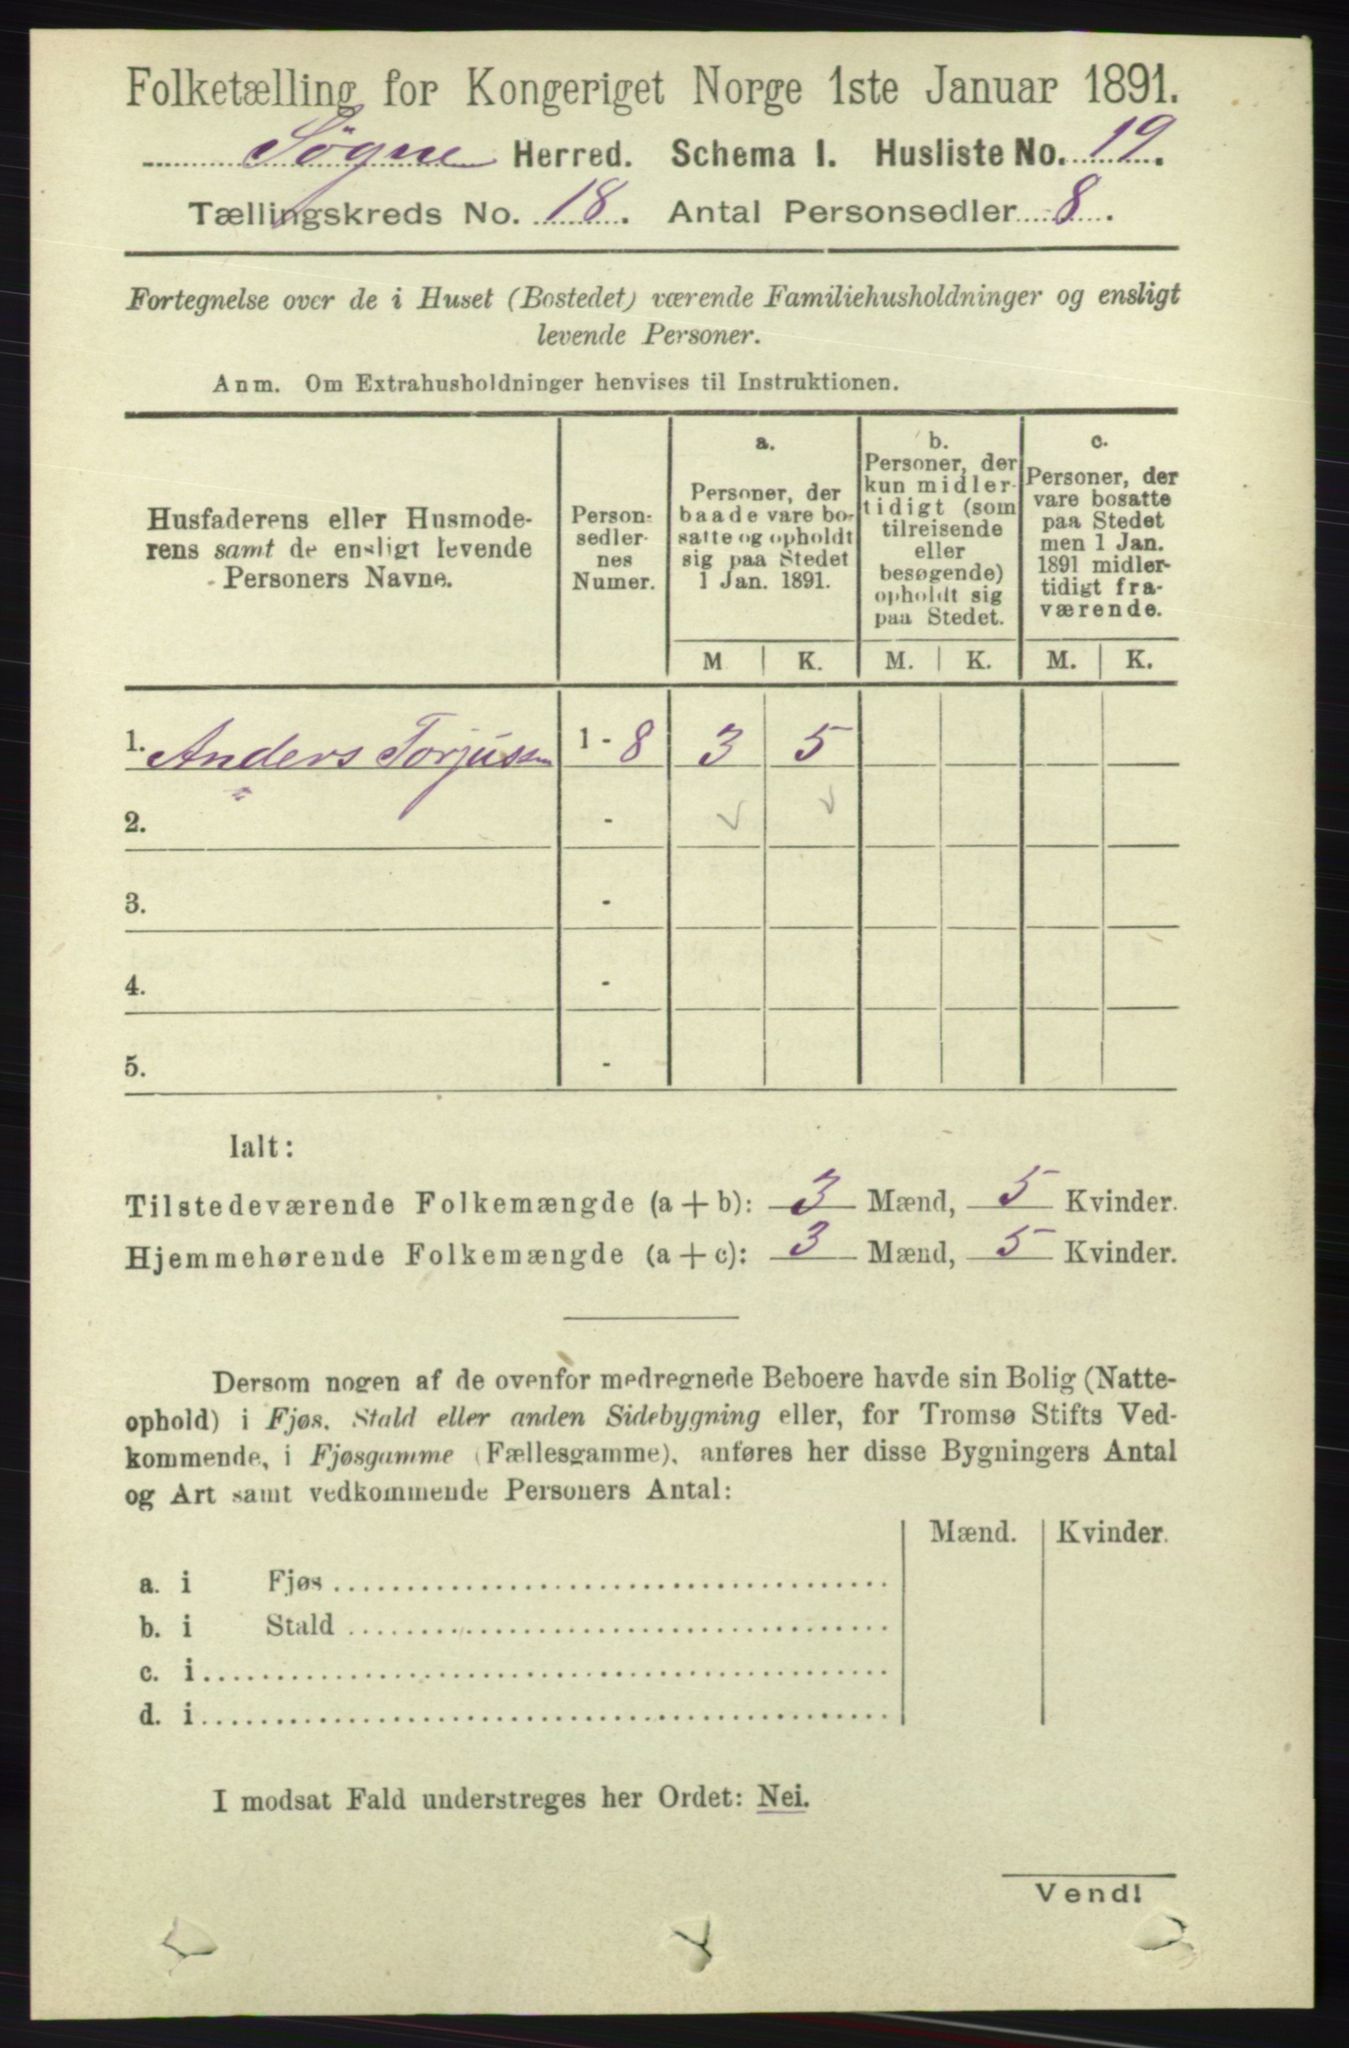 Folketælling for Kongeriget Norge 1ste Januar 1891.
Søgne Herred. Schema I. Husliste No. 19.
Tællingskreds No. 18. Antal Personsedler 8.
Fortegnelse over de i Huset (Bostedet) værende Familiehusholdninger og ensligt
levende Personer.
Anm. Om Extrahusholdninger henvises til Instruktionen.
Husfaderens eller Husmode-
rens samt de ensligt levende
Personers Navne.
Person-
sedler-
nes
Numer.
a.
Personer, der
baade vare bo-
satte og opholdt
sig paa Stedet
1 Jan. 1891.
b.
Personer, der
kun midler-
tidigt (som
tilreisende
eller
besøgende)
opholdt sig
paa Stedet.
c.
Personer, der
vare bosatte
paa Stedet
men 1 Jan.
1891 midler-
tidigt fra-
værende.
M K. M. K. M. K.
1. Anders Torjussen 1 - 8 3 5
2. -
3. -
4. -
5. -
Ialt:
Tilstedeværende Folkemængde (a + b): 3 Mænd, 5 Kvinder.
Hjemmehørende Folkemængde (a + c): 3 Mænd, 5 Kvinder.
Dersom nogen af de ovenfor medregnede Beboere havde sin Bolig (Natte-
ophold) i Fjøs, Stald eller anden Sidebygning eller, for Tromsø Stifts Ved-
kommende, i Fjøsgamme (Fællesgamme), anføres her disse Bygningers Antal
og Art samt vedkommende Personers Antal:
Mænd. Kvinder.
a. i Fjøs
b. i Stald
c. i
d. i
I modsat Fald understreges her Ordet: Nei.
Vend!